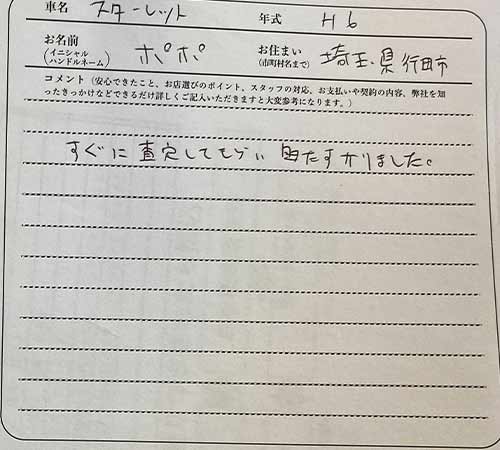 車名 スターレット 年式 H6
お名前 (イニシャル ハンドルネーム) ポポ お住まい (市町村名まで) 埼玉県行田市
コメント(安心できたこと、お店選びのポイント、スタッフの対応、お支払いや契約の内容、弊社を知
ったきっかけなどできるだけ詳しくご記入いただきますと大変参考になります。)
すぐに査定してもらい たすかりました。